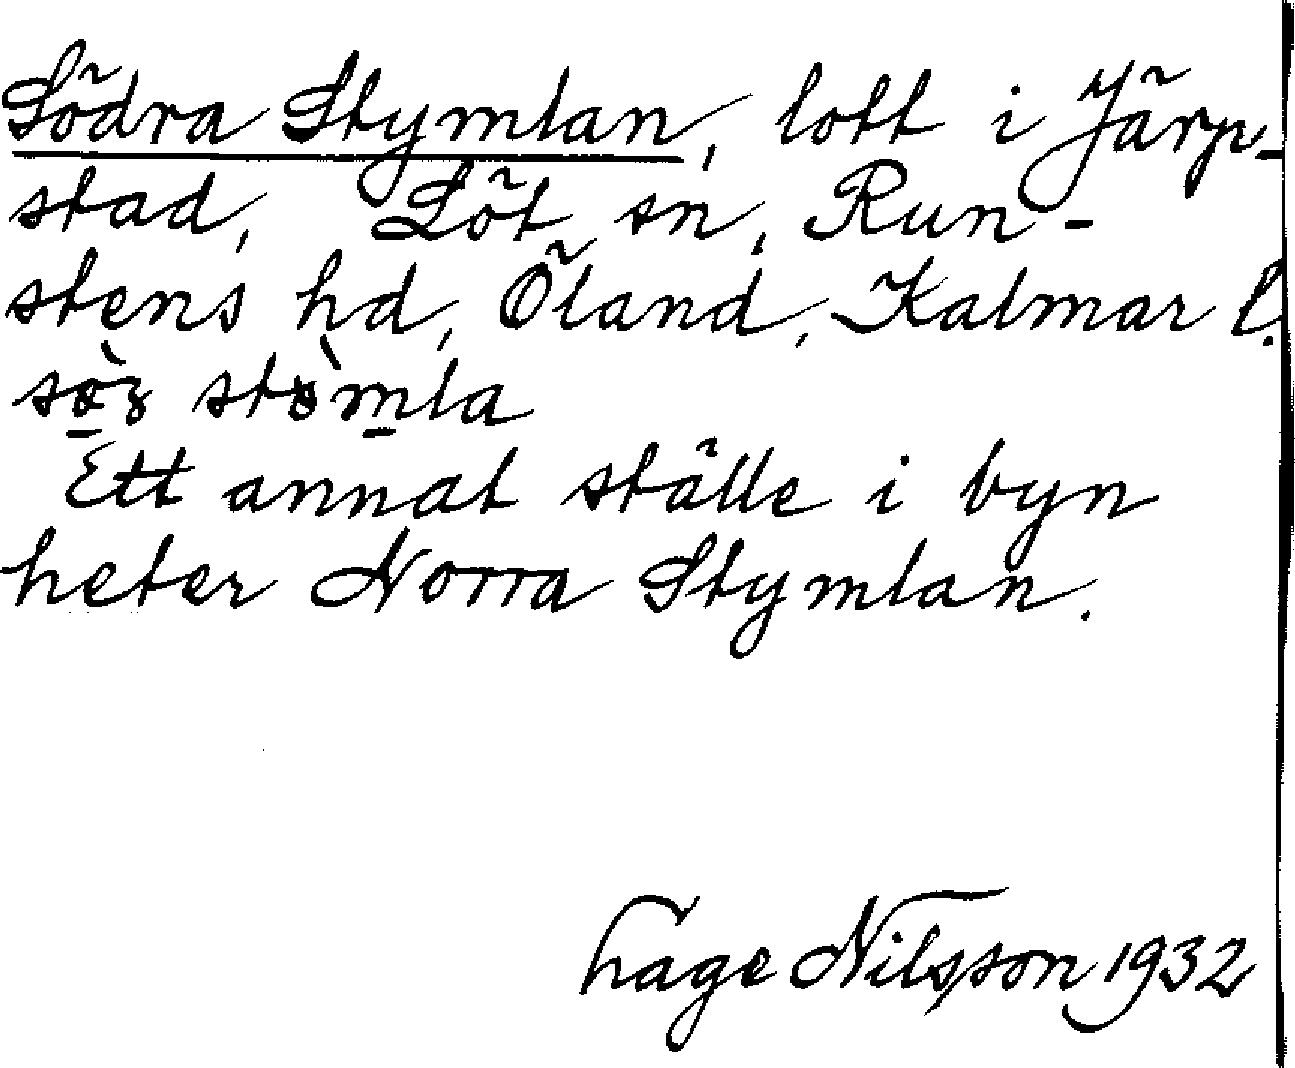 Södra Stymlan, lott i Järp-
stad, Löt sn, Run-
stens hd, Öland, Kalmar l.
stömla
Ett annat ställe i byn
heter Norra Stymlan.
Hage Nilsson 1932